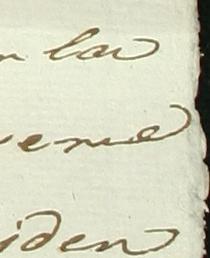 n la
venie
iden